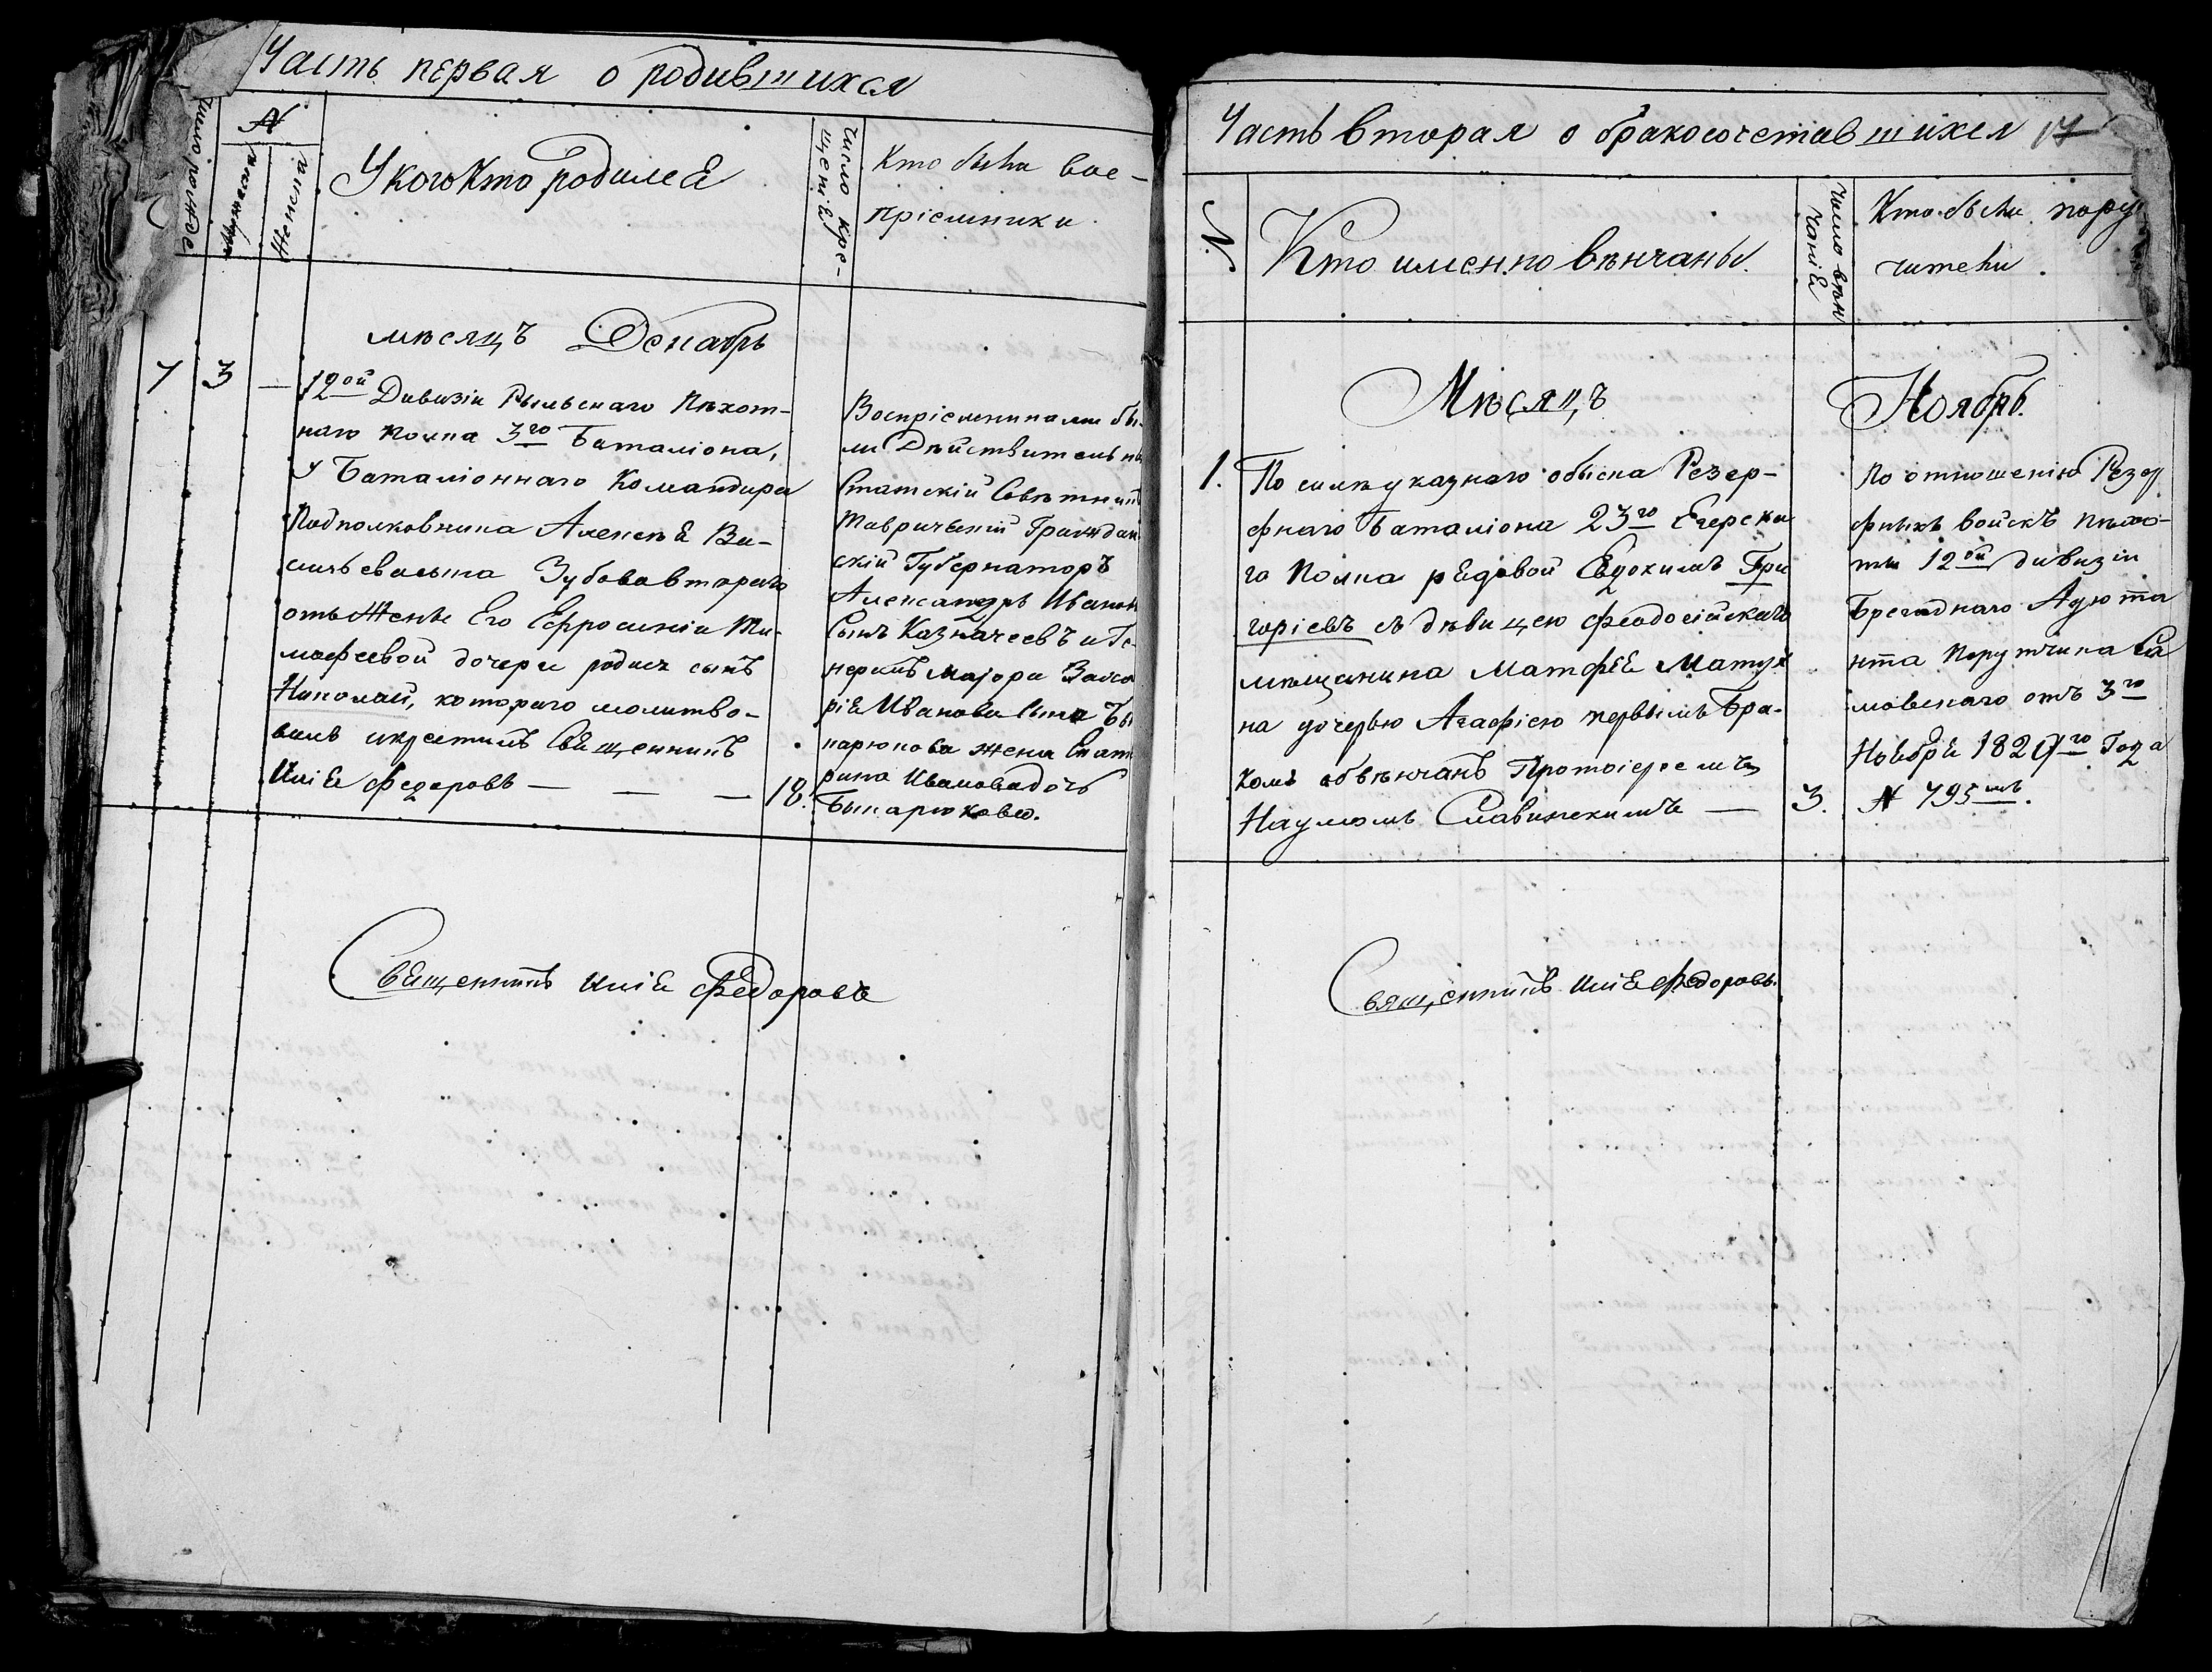 Часть первая о родившихся
Число рожде
№
мужеска
Женска
У кого кто родился
Число кре-
щенія
Кто были вос-
пріемники
мѣсяцъ Декабрь
7 3 —
12ой Дивизіи Рыльскаго Пѣхот-
наго полка 3го Баталіона,
у Баталіоннаго Командира
Подполковника Алексѣя Ва-
сильева сына Зубова втораго
отъ Жены Его Ефросиніи Ти-
мофеевой дочери родися сынъ
Николай, котораго молитво-
валъ и крестилъ Священникъ
Илія Федоровъ — — — 18.
Воспріемниками бы-
ли Дѣйствительны
Статскій Совѣтникъ
Таврическій Граждан
скій Губернаторъ
Александръ Иванов
Сынъ Казначеевъ и Ге-
нералъ Маіора
Иванова сына
жена Екате
рина Иванова дочь
Священникъ Илія Федоровъ
Часть вторая о бракосочетавшихся 17
№
Кто именно вѣнчаны.
Число вѣн
чанія
Кто были пору
чители.
Мѣсяцъ Ноябрь.
1. По силѣ указнаго обыска Резер-
фнаго Баталіона 23го Егерска
го Полка рядовой Евдокимъ Гри
горіевъ съ дѣвицею Феодосійскаго
мѣщанина Матфея
на дочерью Агафіею первымъ Бра-
комъ обвѣнчанъ Протоіереемъ
Наумомъ Славинскимъ — 3.
По отношенію Резер
фныхъ войскъ пѣхо-
ты 12ой дивизіи
Брегаднаго Адюта
нта Порутчика
отъ 3го
Ноября го Года
№ 795мъ.
Священникъ Илія Федоровъ.